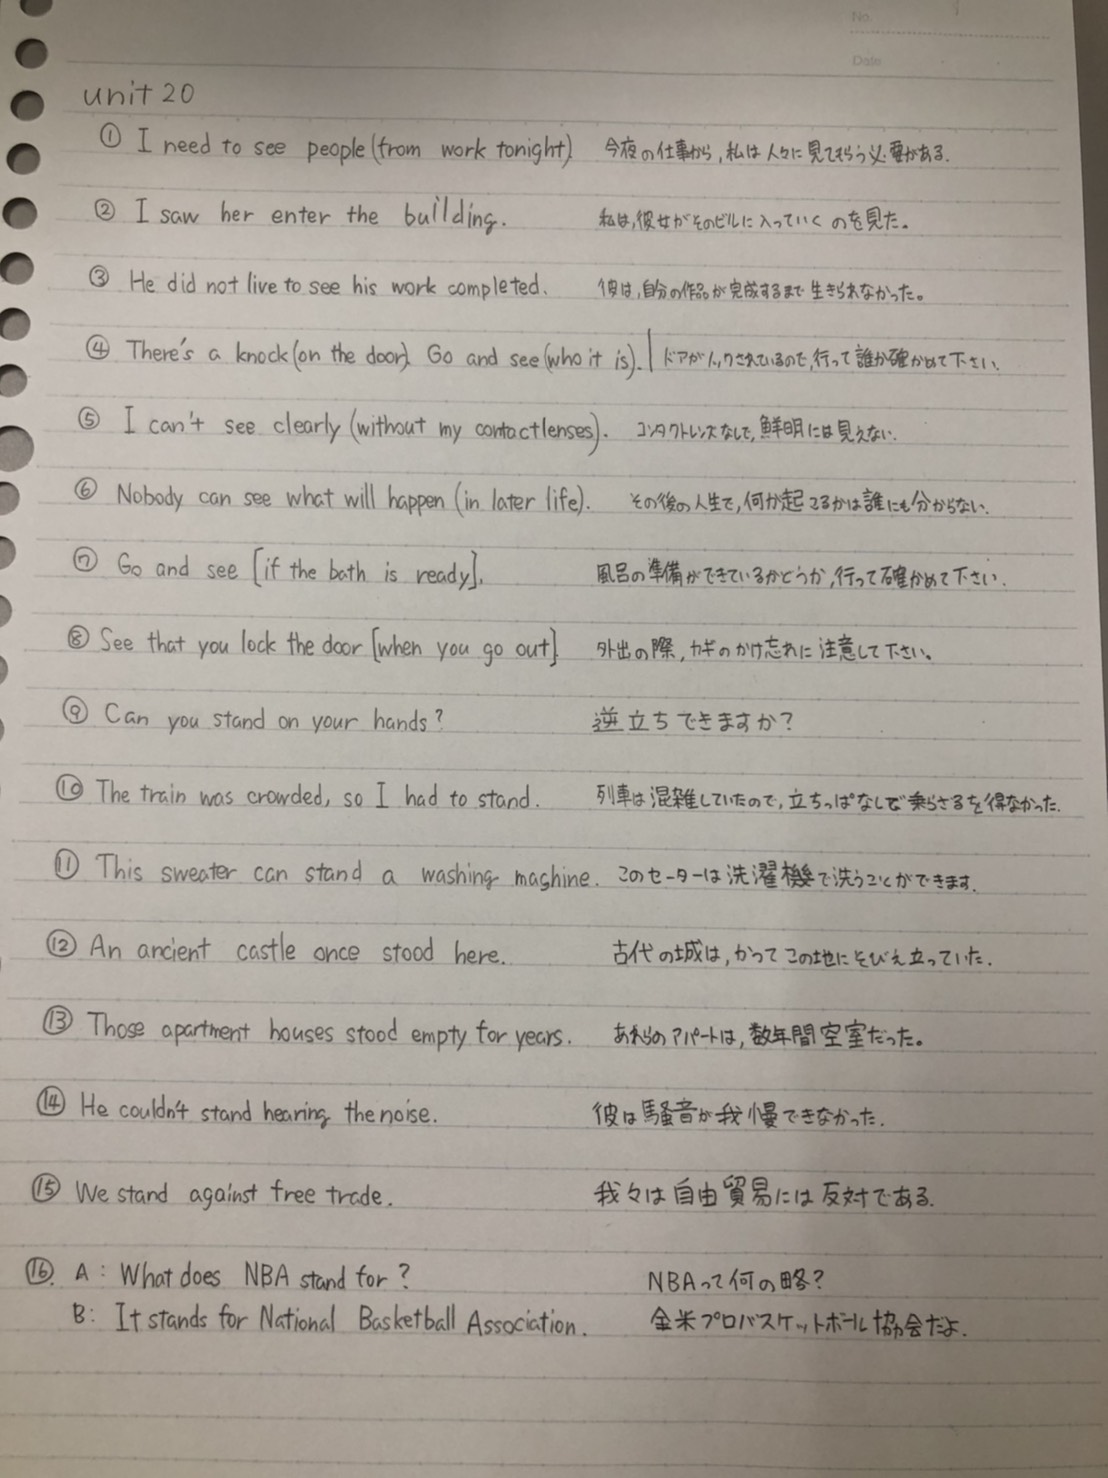 No.
Date
unit 20
① I need to see people (from work tonight) 今夜の仕事から, 私は人々に見てもらう必要がある.
② I saw her enter the building. 私は, 彼女がそのビルに入っていくのを見た。
③ He did not live to see his work completed. 彼は, 自分の作品が完成するまで生きられなかった。
④ There's a knock (on the door). Go and see (who it is). ドアがノックされているので, 行って誰か確かめて下さい.
⑤ I can't see clearly (without my contactlenses). コンタクトレンズなしで, 鮮明には見えない.
⑥ Nobody can see what will happen (in later life). その後の人生で, 何が起こるかは誰にも分からない.
⑦ Go and see [if the bath is ready]. 風呂の準備ができているかどうか, 行って確かめて下さい.
⑧ See that you lock the door [when you go out] 外出の際, カギのかけ忘れに注意して下さい。
⑨ Can you stand on your hands? 逆立ちできますか?
⑩ The train was crowded, so I had to stand. 列車は混雑していたので, 立ちっぱなしで乗らざるを得なかった.
⑪ This sweater can stand a washing maghine. このセーターは洗濯機で洗うことができます.
⑫ An ancient castle once stood here. 古代の城は, かつてこの地にそびえ立っていた.
⑬ Those apartment houses stood empty for years. あれらのアパートは, 数年間空室だった。
⑭ He couldn't stand hearing the noise. 彼は騒音が我慢できなかった.
⑮ We stand against free trade. 我々は自由貿易には反対である.
⑯. A : What does NBA stand for? NBAって何の略?
B: It stands for National Basketball Association. 全米プロバスケットボール協会だよ.